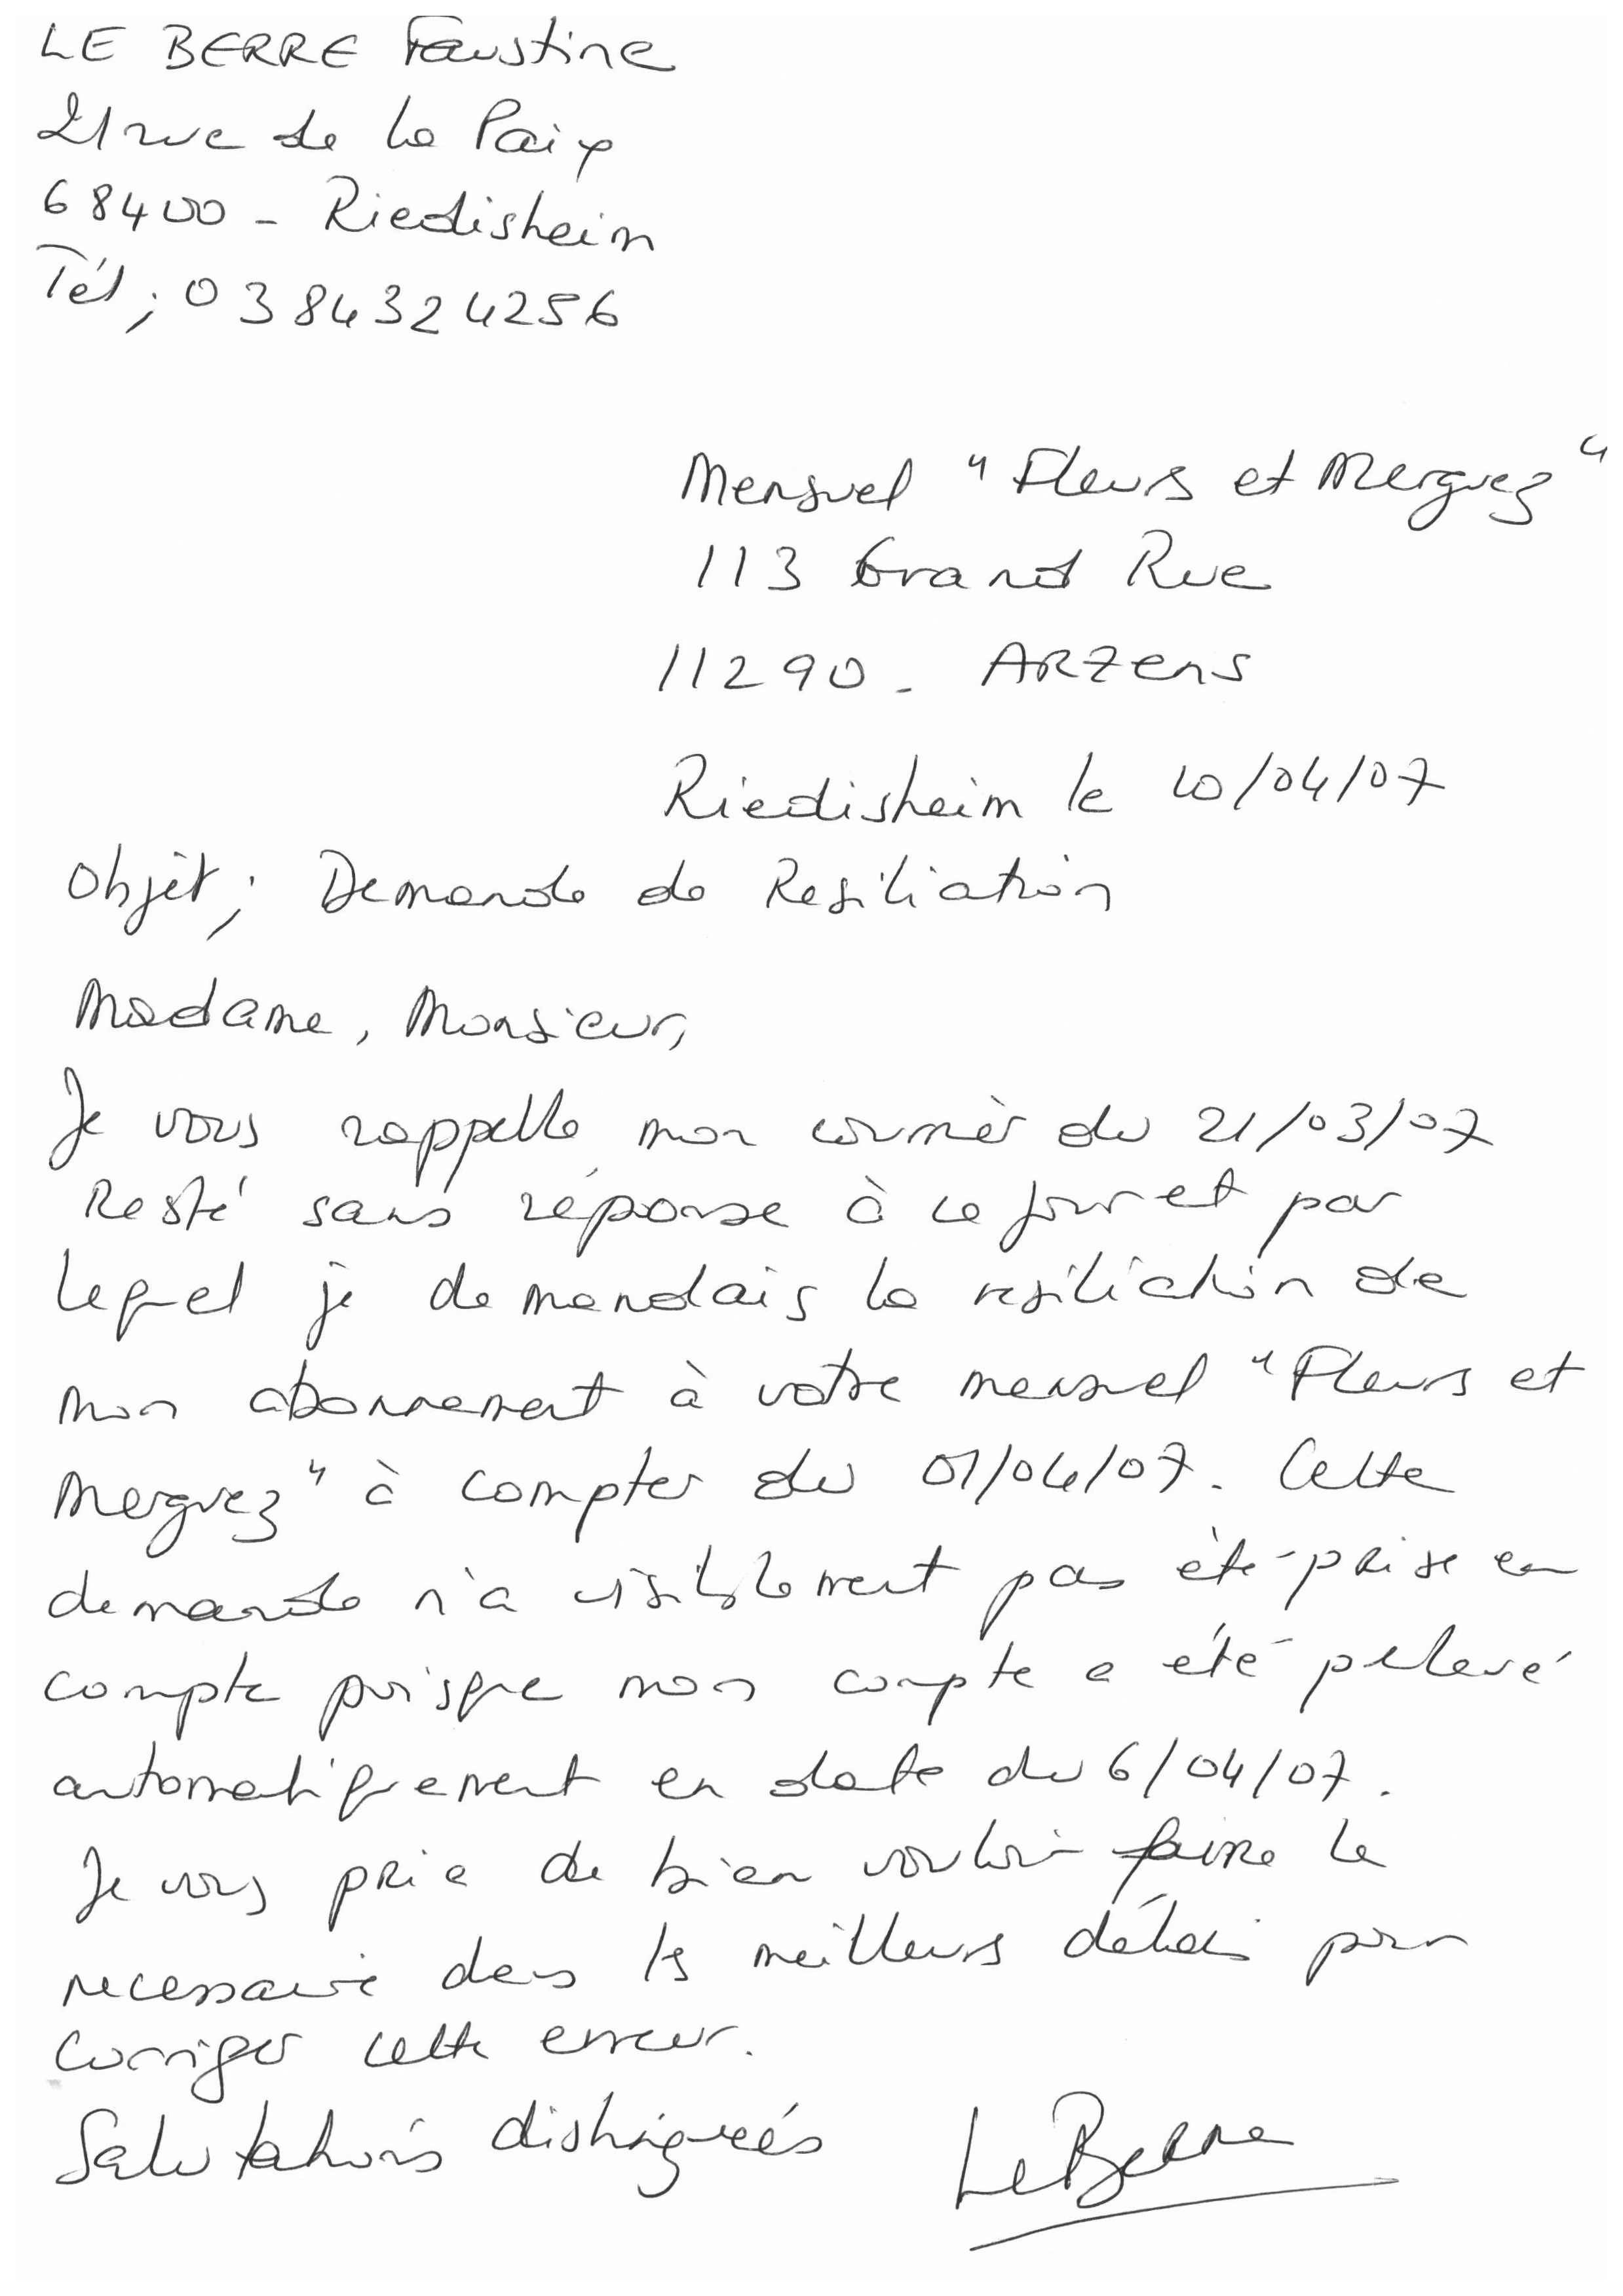 LE BERRE Faustine
21 rue de la Paix
68400 - Riedisheim
Tél ; 0384324256
Mensuel "Fleurs et Merguez"
113 Grand Rue
11290 - ARZens
Riedisheim le 10/04/07
Objèt ; Demande de Resiliation
Madame, Monsieur,
Je vous rappelle mon courrièr du 21/03/07
Resté sans réponse à ce jour et par
lequel je demandais la resiliation de
mon abonnement à votre mensuel "Fleurs et
Merguez" à compter du 01/04/07. Cette
demande n'a visiblement pas été prise en
compte puisque mon compte a été prelevé
automatiquement en date du 6/04/07.
Je vous prie de bien vouloir faire le
necessaire dans les meilleurs délais pour
corriger cette erreur.
Salutations distinguées Le Berre